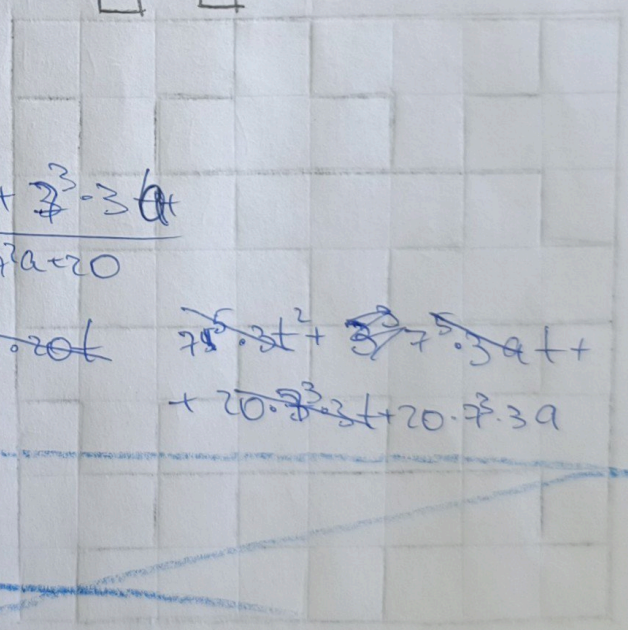 + 7³·3a+
7²a+20
·20t 7⁵·3t²+ 7⁵·3at+
+ 20·7³·3t+20·7³·3a